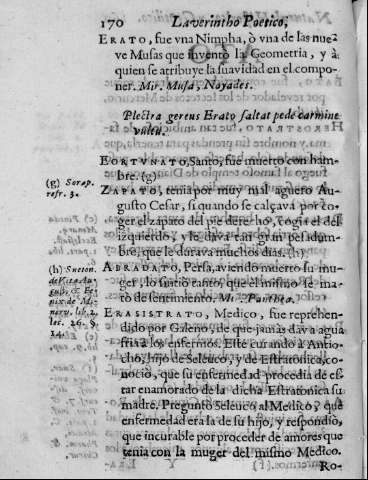 170 Laverintho Poetico,
ERATO, fue vna Nimpha, ò vna de las nue
ve Musas que inventò la Geometria, y à
quien se atribuye la suavidad en el compo-
ner. Mir. Musa, Nayades.
Plectra gerens Erato saltat pede carmine
vultu.
FORTVNATO, Santo, fue muerto con ham-
bre. (g)
(g) Sorap.
refr. 3.
ZAPATO, tenia por muy mal aguero Au-
gusto Cesar, si quando se calçava por co-
ger el zapato del pie derecho, cogia el del
izquierdo, y le dava tan gran pesadum-
bre, que le durava muchos dias. (h)
(h) Sueton.
de Vita Au-
nix de Mi-
lec. 26. §
14.
ABRADATO, Persa, aviendo muerto su mu-
ger, lo sintiò tanto, que el mismo se ma-
tò de sentimiento. Mir. Panthea.
ERASISTRATO, Medico, fue reprehen-
dido por Galeno, de que jamàs dava agua
fria à los enfermos. Este curando à Antio-
cho, hijo de Seleuco, y de Estratonica, co-
nociò, que su enfermedad procedia de es-
tar enamorado de la dicha Estratonica su
madre. Preguntò Seleuco al Medico, què
enfermedad era la de su hijo, y respondiò,
que incurable por proceder de amores que
tenia con la muger del mismo Medico.
Ro-